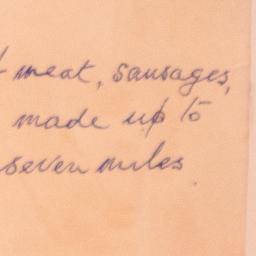 meat, sausages,
made up to
seven miles